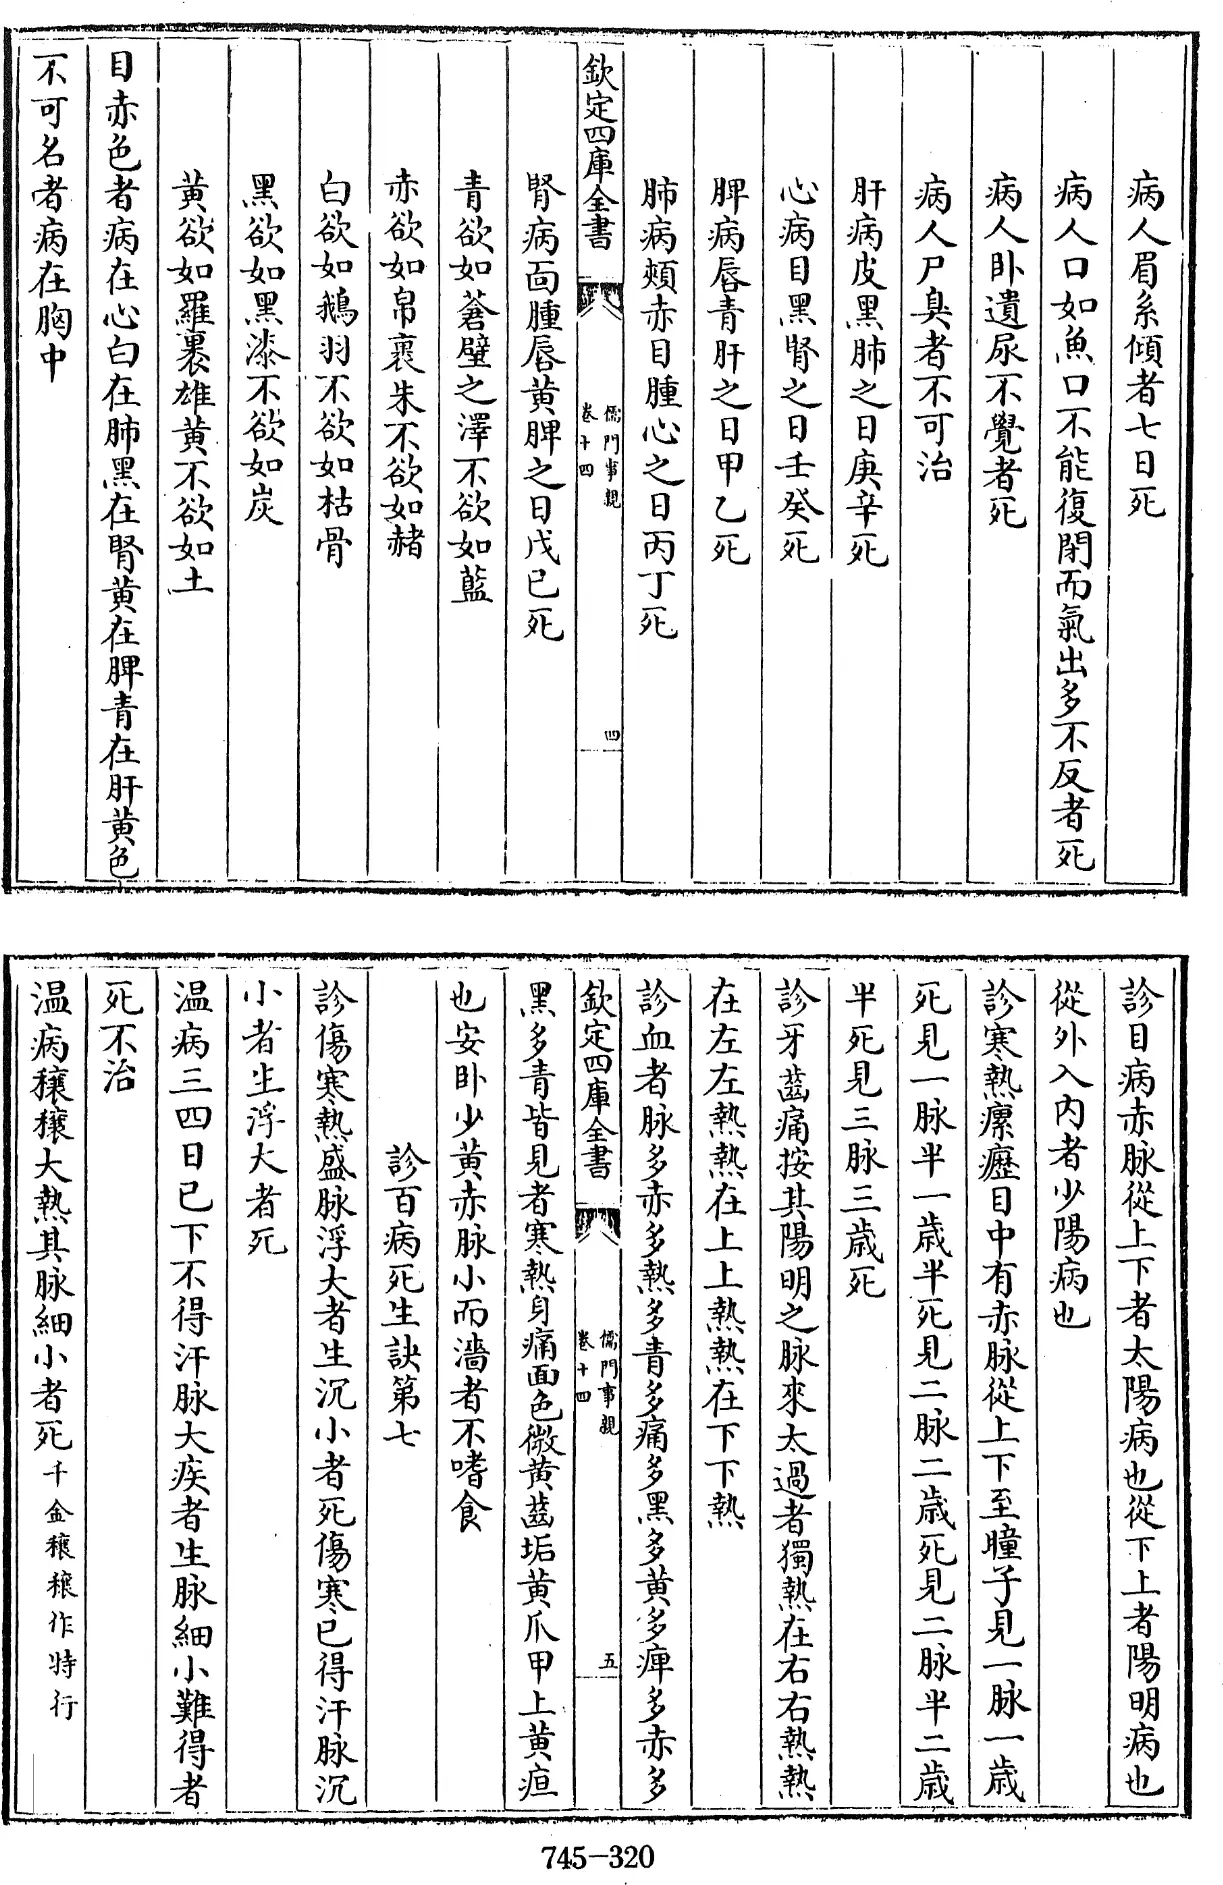 病人眉系傾者七日死
病人口如魚口不能復閉而氣出多不反者死
病人卧遺尿不覺者死
病人尸臭者不可治
肝病皮黑肺之日庚辛死
心病目黑腎之日壬癸死
脾病唇青肝之日甲乙死
肺病頰赤目腫心之日丙丁死
欽定四庫全書
儒門事親
卷十四
四
腎病面腫唇黄脾之日戊已死
青欲如蒼璧之澤不欲如藍
赤欲如帛裹朱不欲如赭
白欲如鵝羽不欲如枯骨
黑欲如黑漆不欲如炭
黄欲如羅裹雄黄不欲如土
目赤色者病在心白在肺黑在腎黄在脾青在肝黄色
不可名者病在胸中
診目病赤脉從上下者太陽病也從下上者陽明病也
從外入内者少陽病也
診寒熱瘰癧目中有赤脉從上下至瞳子見一脉一歳
死見一脉半一歳半死見二脉二歳死見二脉半二歳
半死見三脉三歳死
診牙齒痛按其陽明之脉來太過者獨熱在右右熱熱
在左左熱熱在上上熱熱在下下熱
診血者脉多赤多熱多青多痛多黑多黄多痺多赤多
欽定四庫全書
儒門事親
卷十四
五
黑多青皆見者寒熱身痛面色微黄齒垢黄爪甲上黄疸
也安卧少黄赤脉小而濇者不嗜食
診百病死生訣第七
診傷寒熱盛脉浮大者生沉小者死傷寒已得汗脉沉
小者生浮大者死
温病三四日已下不得汗脉大疾者生脉細小難得者
死不治
温病穰穰大熱其脉細小者死千金穰穰作時行
745-320